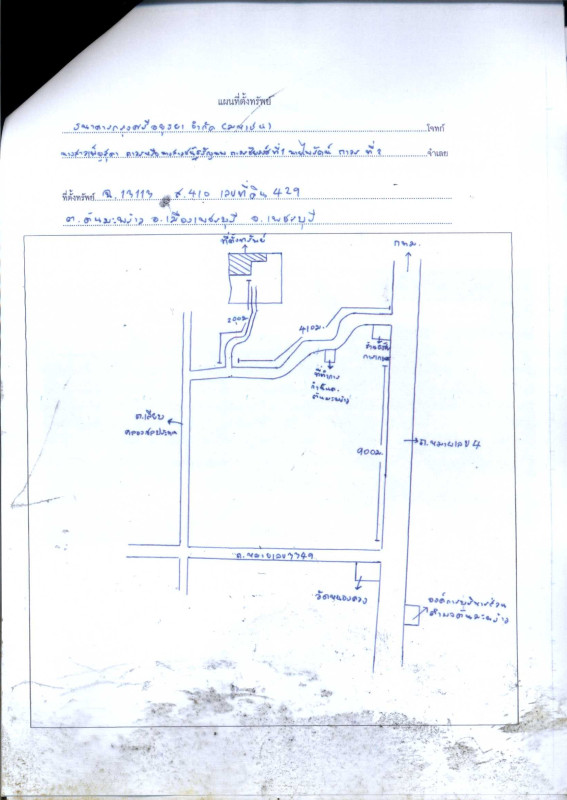 แผนที่ตั้งทรัพย์
ธนาคารกรุงศรีอยุธยา จำกัด (มหาชน) โจทก์
ที่ 1 นายไพรัตน์ ที่ 2 จำเลย
ที่ตั้งทรัพย์ ฉ.13113 ส.410 เลขที่ดิน 429
ต.ต้นมะพร้าว อ.เมืองเพชรบุรี จ.เพชรบุรี
ที่ตั้งทรัพย์
กทม.
200ม.
410ม.
ที่ทำการ
กำนันต.
ต้นมะพร้าว
ถ.เลียบ
คลองชลประทาน
ถ.หมายเลข 4
900ม
ถ.หมายเลข 3349
วัดหนองควง
องค์การบริหารส่วน
ตำบลต้นมะพร้าว